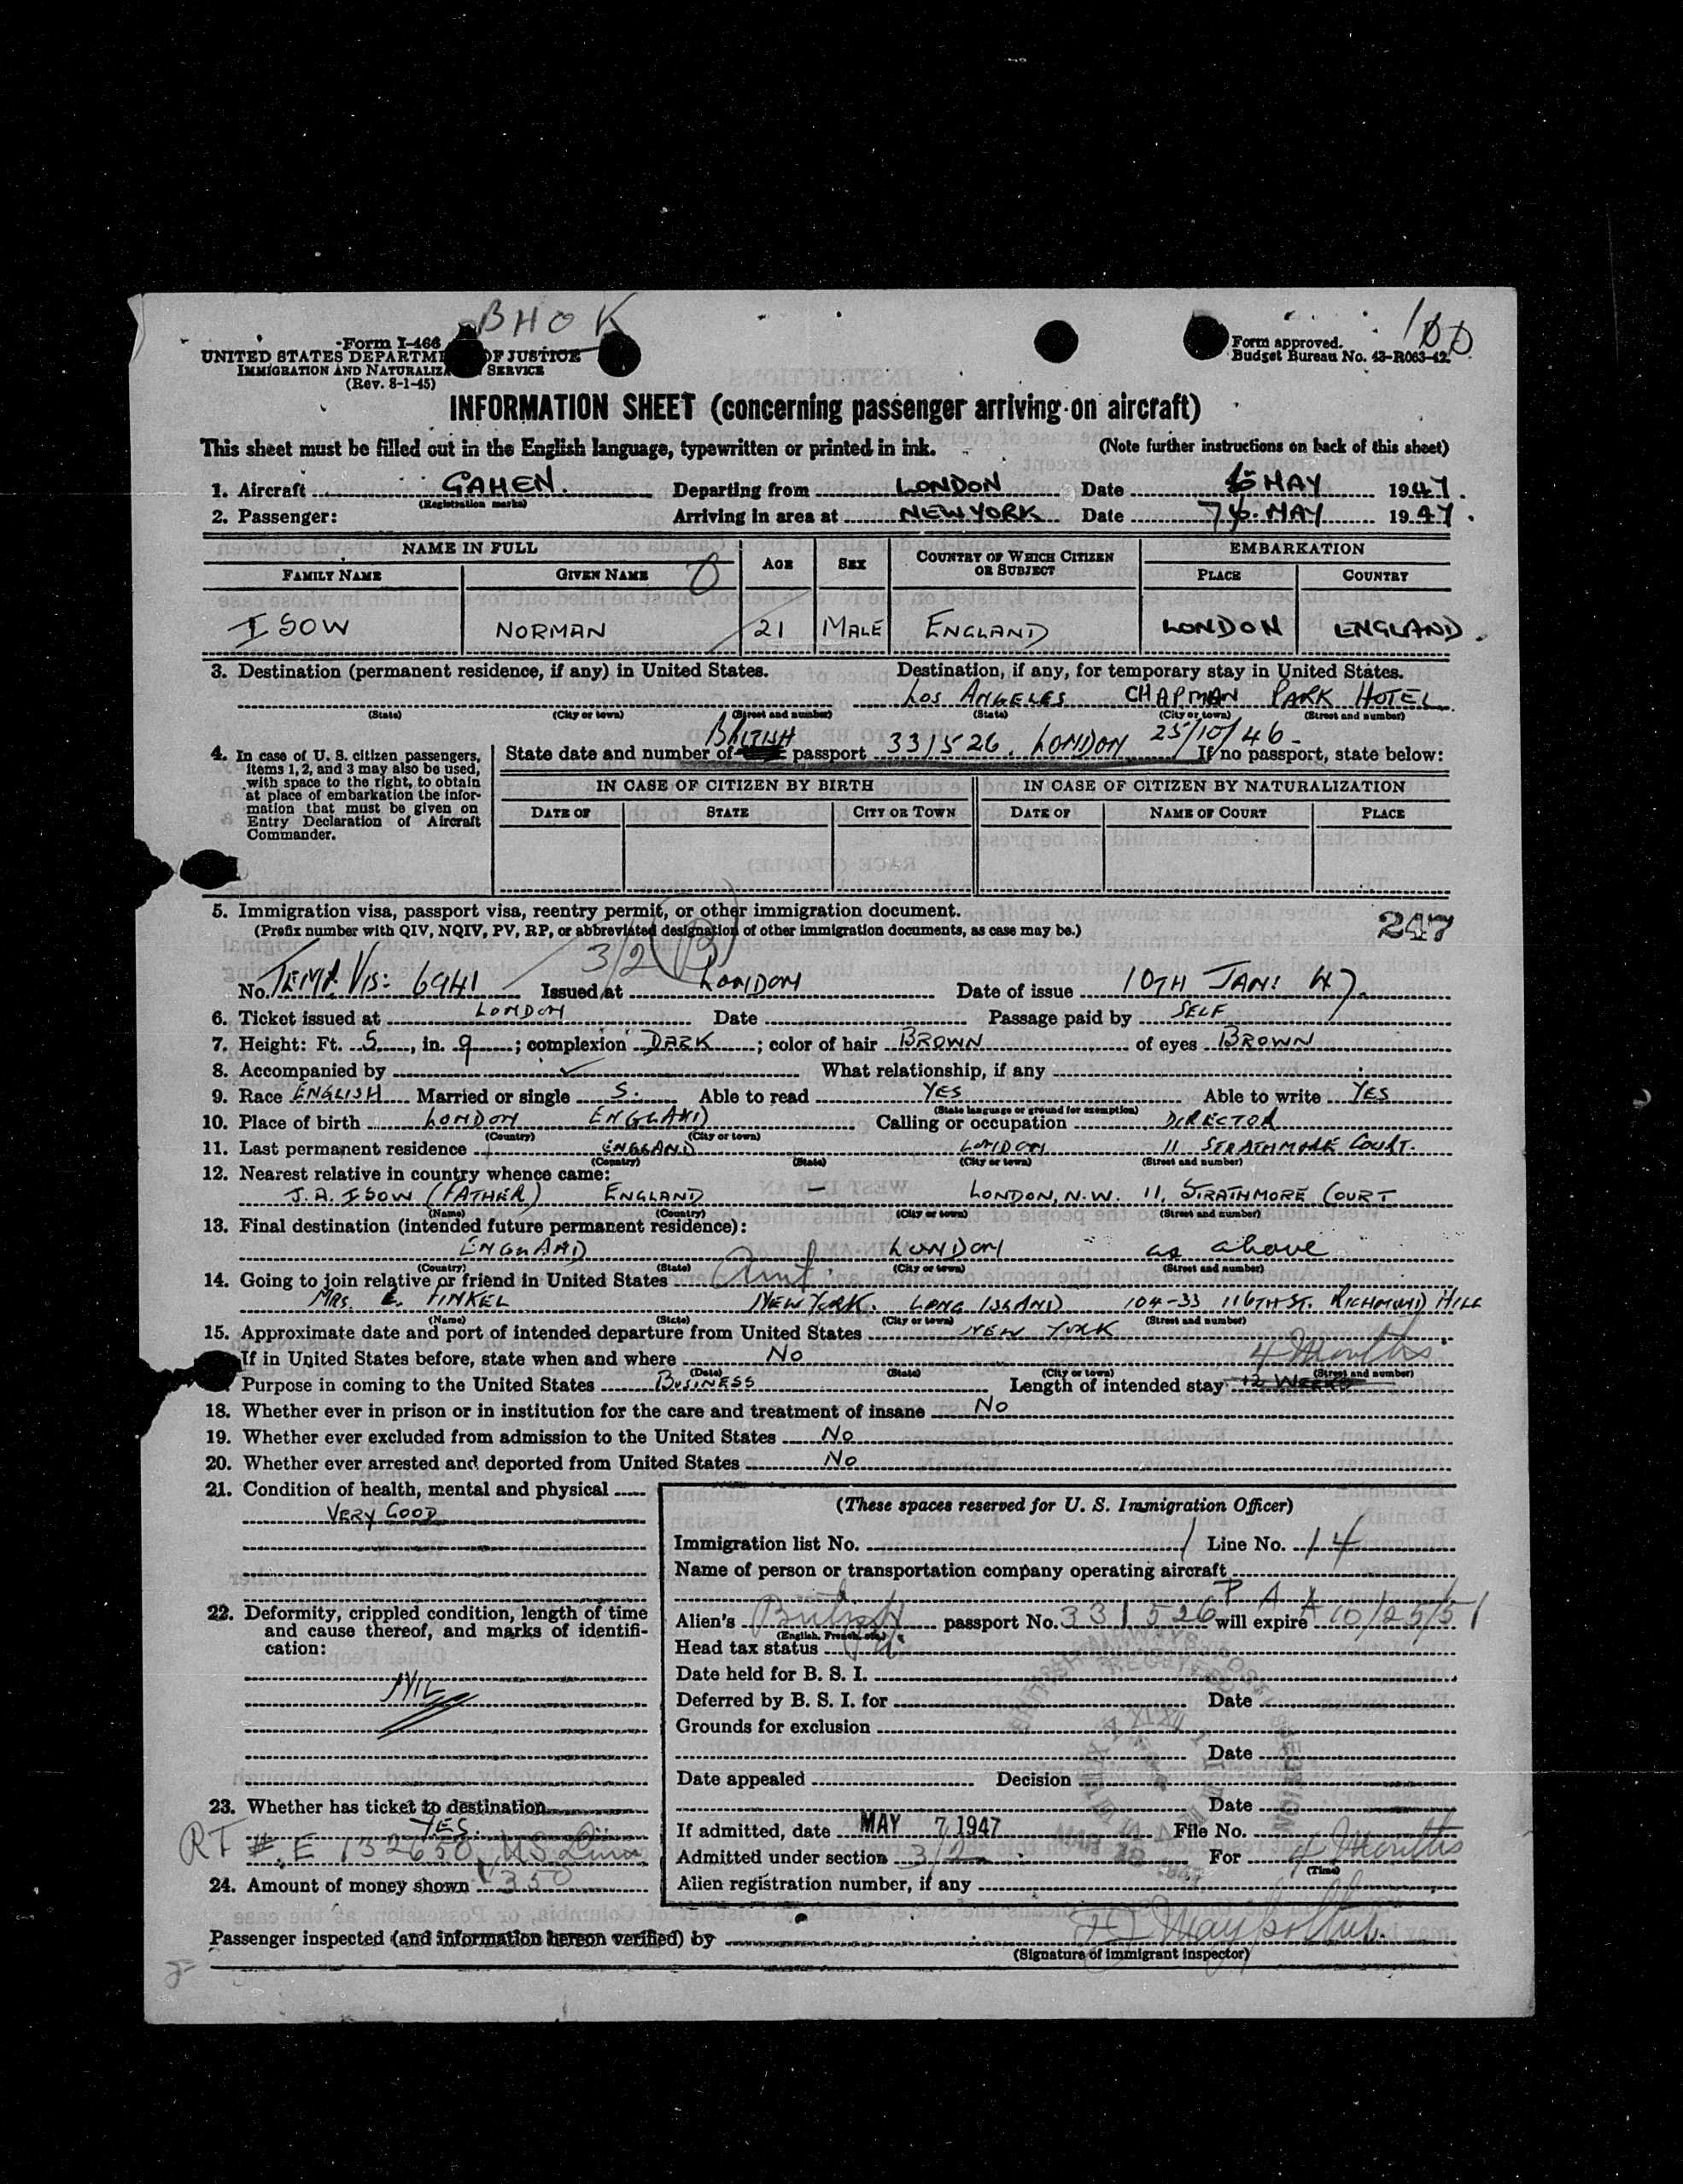 BHOK
100
Form I-466
UNITED STATES DEPARTME OF JUSTICE
IMMIGRATION AND NATURALIZA SERVICE
(Rev. 8-1-45)
Form approved.
Budget Bureau No. 43-R063-42.
INFORMATION SHEET (concerning passenger arriving on aircraft)
This sheet must be filled out in the English language, typewritten or printed in ink. (Note further instructions on back of this sheet)
1. Aircraft GAHEN. Departing from LONDON Date 6 MAY 1947.
(Registration marks)
2. Passenger: Arriving in area at NEW YORK Date 7 MAY 1947.
NAME IN FULL AGE SEX COUNTRY OF WHICH CITIZEN OR SUBJECT EMBARKATION
FAMILY NAME GIVEN NAME PLACE COUNTRY
ISOW NORMAN 21 MALE ENGLAND LONDON ENGLAND.
3. Destination (permanent residence, if any) in United States. Destination, if any, for temporary stay in United States.
LOS ANGELES CHAPMAN PARK HOTEL
(State) (City or town) (Street and number) (State) (City or town) (Street and number)
4. In case of U. S. citizen passengers, items 1, 2, and 3 may also be used, with space to the right, to obtain at place of embarkation the information that must be given on Entry Declaration of Aircraft Commander.
State date and number of BRITISH passport 331526. LONDON 25/10/46- If no passport, state below:
IN CASE OF CITIZEN BY BIRTH IN CASE OF CITIZEN BY NATURALIZATION
DATE OF STATE CITY OR TOWN DATE OF NAME OF COURT PLACE
5. Immigration visa, passport visa, reentry permit, or other immigration document.
(Prefix number with QIV, NQIV, PV, RP, or abbreviated designation of other immigration documents, as case may be.)
247
3/2 (B)
No. TEMP. VIS: 6941 Issued at LONDON Date of issue 10TH JAN: 47.
6. Ticket issued at LONDON Date Passage paid by SELF
7. Height: Ft. 5, in. 9; complexion DARK; color of hair BROWN of eyes BROWN
8. Accompanied by What relationship, if any
9. Race ENGLISH Married or single S. Able to read YES Able to write YES
(State language or ground for exemption)
10. Place of birth LONDON ENGLAND Calling or occupation DIRECTOR
(Country) (City or town)
11. Last permanent residence ENGLAND LONDON 11 STRATHMORE COURT.
(Country) (State) (City or town) (Street and number)
12. Nearest relative in country whence came:
J.A. ISOW (FATHER) ENGLAND - LONDON, N.W. 11, STRATHMORE COURT
(Name) (Country) (City or town) (Street and number)
13. Final destination (intended future permanent residence):
ENGLAND LONDON as above
(Country) (State) (City or town) (Street and number)
14. Going to join relative or friend in United States Aunt.
MRS. E. FINKEL NEW YORK. LONG ISLAND 104-33 116TH ST. RICHMOND HILL
(Name) (State) (City or town) (Street and number)
15. Approximate date and port of intended departure from United States NEW YORK
If in United States before, state when and where No 4 Months
(Date) (State) (City or town) (Street and number)
Purpose in coming to the United States BUSINESS Length of intended stay 12 WEEKS
18. Whether ever in prison or in institution for the care and treatment of insane No
19. Whether ever excluded from admission to the United States No
20. Whether ever arrested and deported from United States No
21. Condition of health, mental and physical
VERY GOOD
22. Deformity, crippled condition, length of time and cause thereof, and marks of identification:
NIL
23. Whether has ticket to destination
YES.
RT #E 132650 US Lines
24. Amount of money shown 350
(These spaces reserved for U. S. Immigration Officer)
Immigration list No. 1 Line No. 14
Name of person or transportation company operating aircraft
P A A
Alien's British passport No. 331526 will expire 10/25/51
(English, French, etc.)
Head tax status
Date held for B. S. I.
Deferred by B. S. I. for Date
Grounds for exclusion
Date
Date appealed Decision
Date
If admitted, date MAY 7 1947 File No.
Admitted under section 3/2 For 4 Months
(Time)
Alien registration number, if any
Passenger inspected (and information hereon verified) by
(Signature of immigrant inspector)